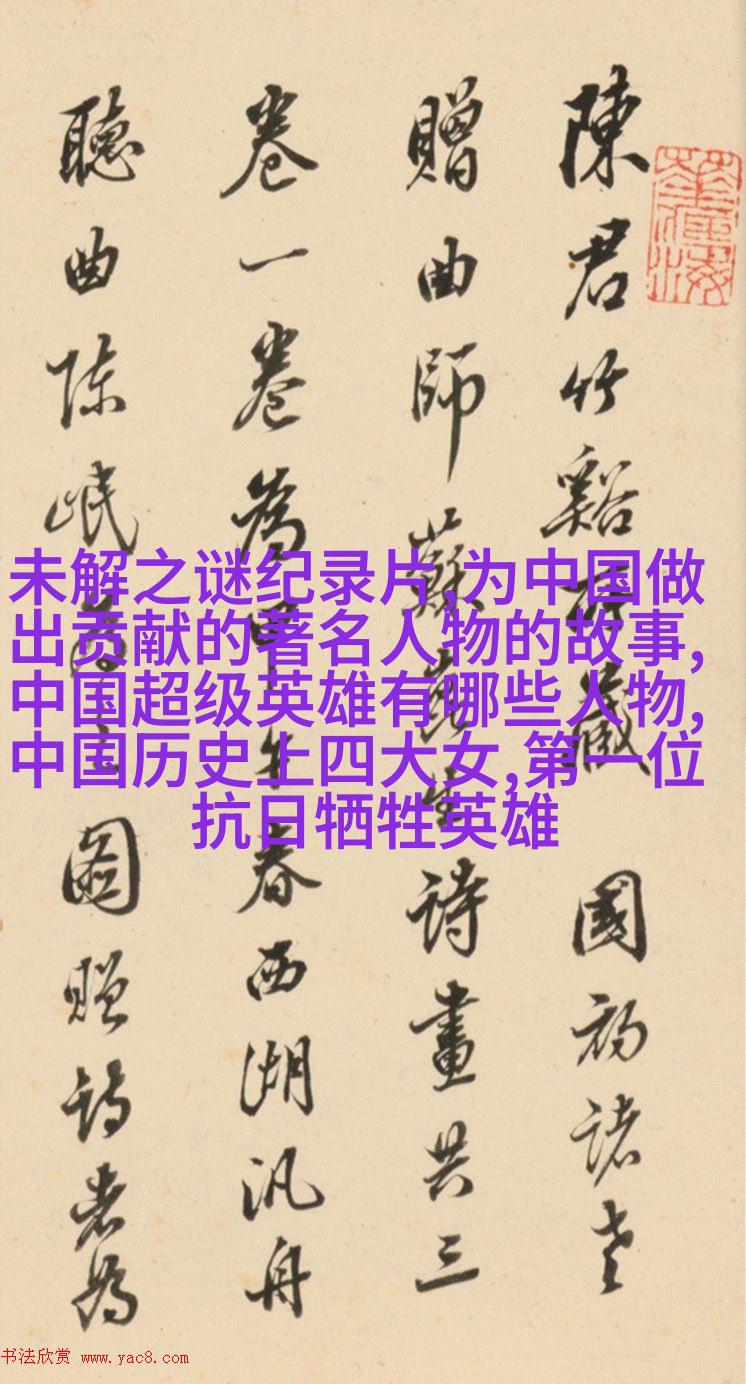 陳君竹谿所藏 國初諸老
贈曲師蘇崑生詩畫共三
卷一卷為甲午春西湖汎舟
聽曲陈岷為之圖贈詩者為
未解之谜纪录片,为中国做
出贡献的著名人物的故事,
中国超级英雄有哪些人物,
中国历史上四大女,第一位
抗日牺牲英雄
书法欣赏 www.yac8.com